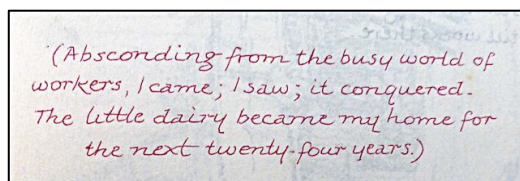 (Absconding from the busy world of
workers, I came; I saw; it conquered.
The little dairy became my home for
the next twenty-four years.)